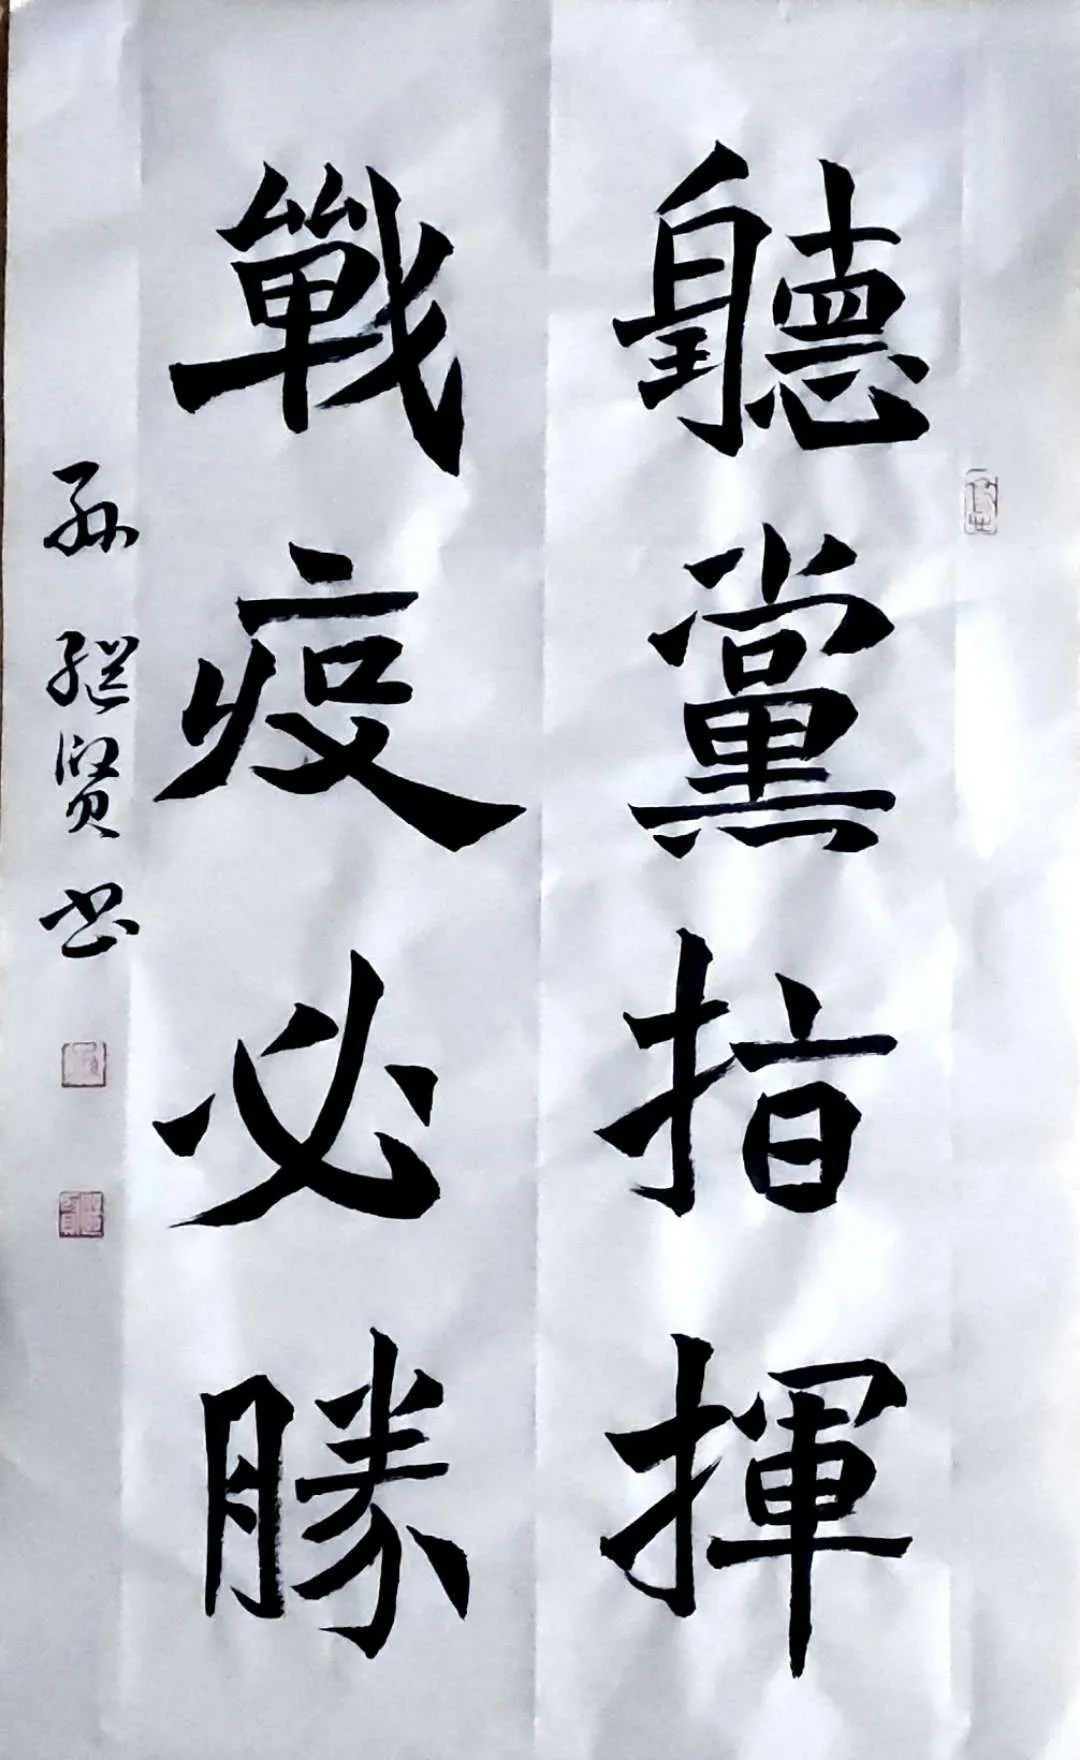 聽黨指揮
戰疫必勝
孫繼賢书